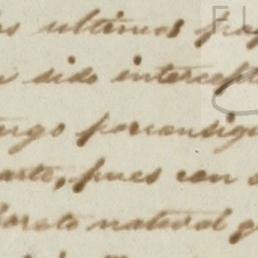 s ultimos pa
sido intercept
go porconsigu
arte, pues con
natural q